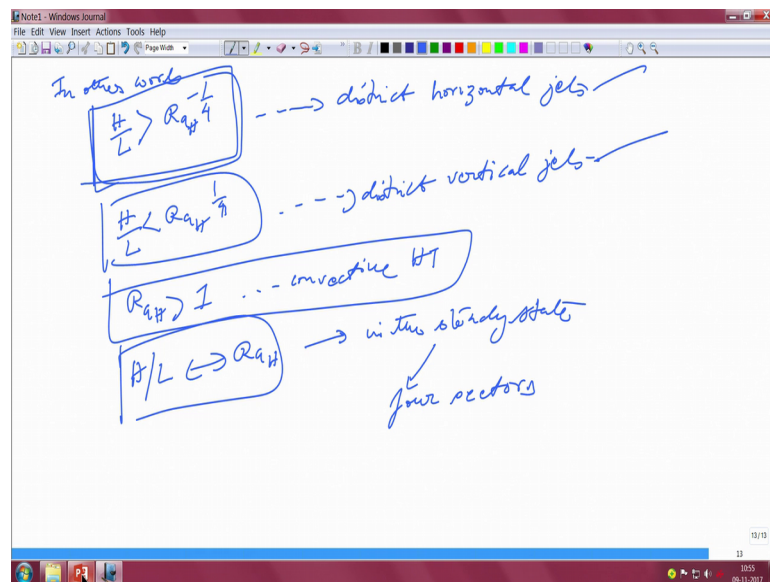 Note1 - Windows Journal
File Edit View Insert Actions Tools Help
Page Width
In other words
H/L > Ra_H^{-1/4} ---> distinct horizontal jets
H/L < Ra_H^{1/4} ----> distinct vertical jets
Ra_H > 1 ... convective HT
H/L ↔ Ra_H → in the steady state
four sectors
13/13
13
10:55
09-11-2017